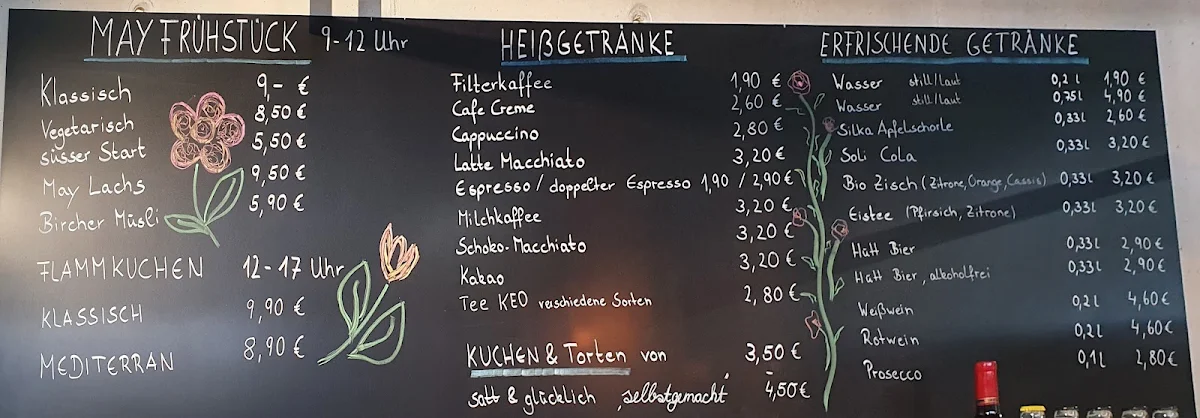 MAY FRÜHSTÜCK 9-12 Uhr
Klassisch 9,- €
Vegetarisch 8,50 €
süsser Start 5,50 €
May Lachs 9,50 €
Bircher Müsli 5,90 €
FLAMMKUCHEN 12-17 Uhr
KLASSISCH 9,90 €
MEDITERRAN 8,90 €
HEIßGETRÄNKE
Filterkaffee 1,90 €
Cafe Creme 2,60 €
Cappuccino 2,80 €
Latte Macchiato 3,20 €
Espresso / doppelter Espresso 1,90 / 2,90 €
Milchkaffee 3,20 €
Schoko-Macchiato 3,20 €
Kakao 3,20 €
Tee KEO verschiedene Sorten 2,80 €
KUCHEN & Torten von 3,50 €
-
satt & glücklich "selbstgemacht" 4,50 €
ERFRISCHENDE GETRÄNKE
Wasser still/laut 0,2 l 1,90 €
Wasser still/laut 0,75l 4,90 €
Silka Apfelschorle 0,33l 2,60 €
Soli Cola 0,33l 3,20 €
Bio Zisch (Zitrone, Orange, Cassis) 0,33l 3,20 €
Eistee (Pfirsich, Zitrone) 0,33l 3,20 €
Hätt Bier 0,33l 2,90 €
Hätt Bier, alkoholfrei 0,33l 2,90 €
Weißwein 0,2l 4,60 €
Rotwein 0,2l 4,60 €
Prosecco 0,1l 2,80 €